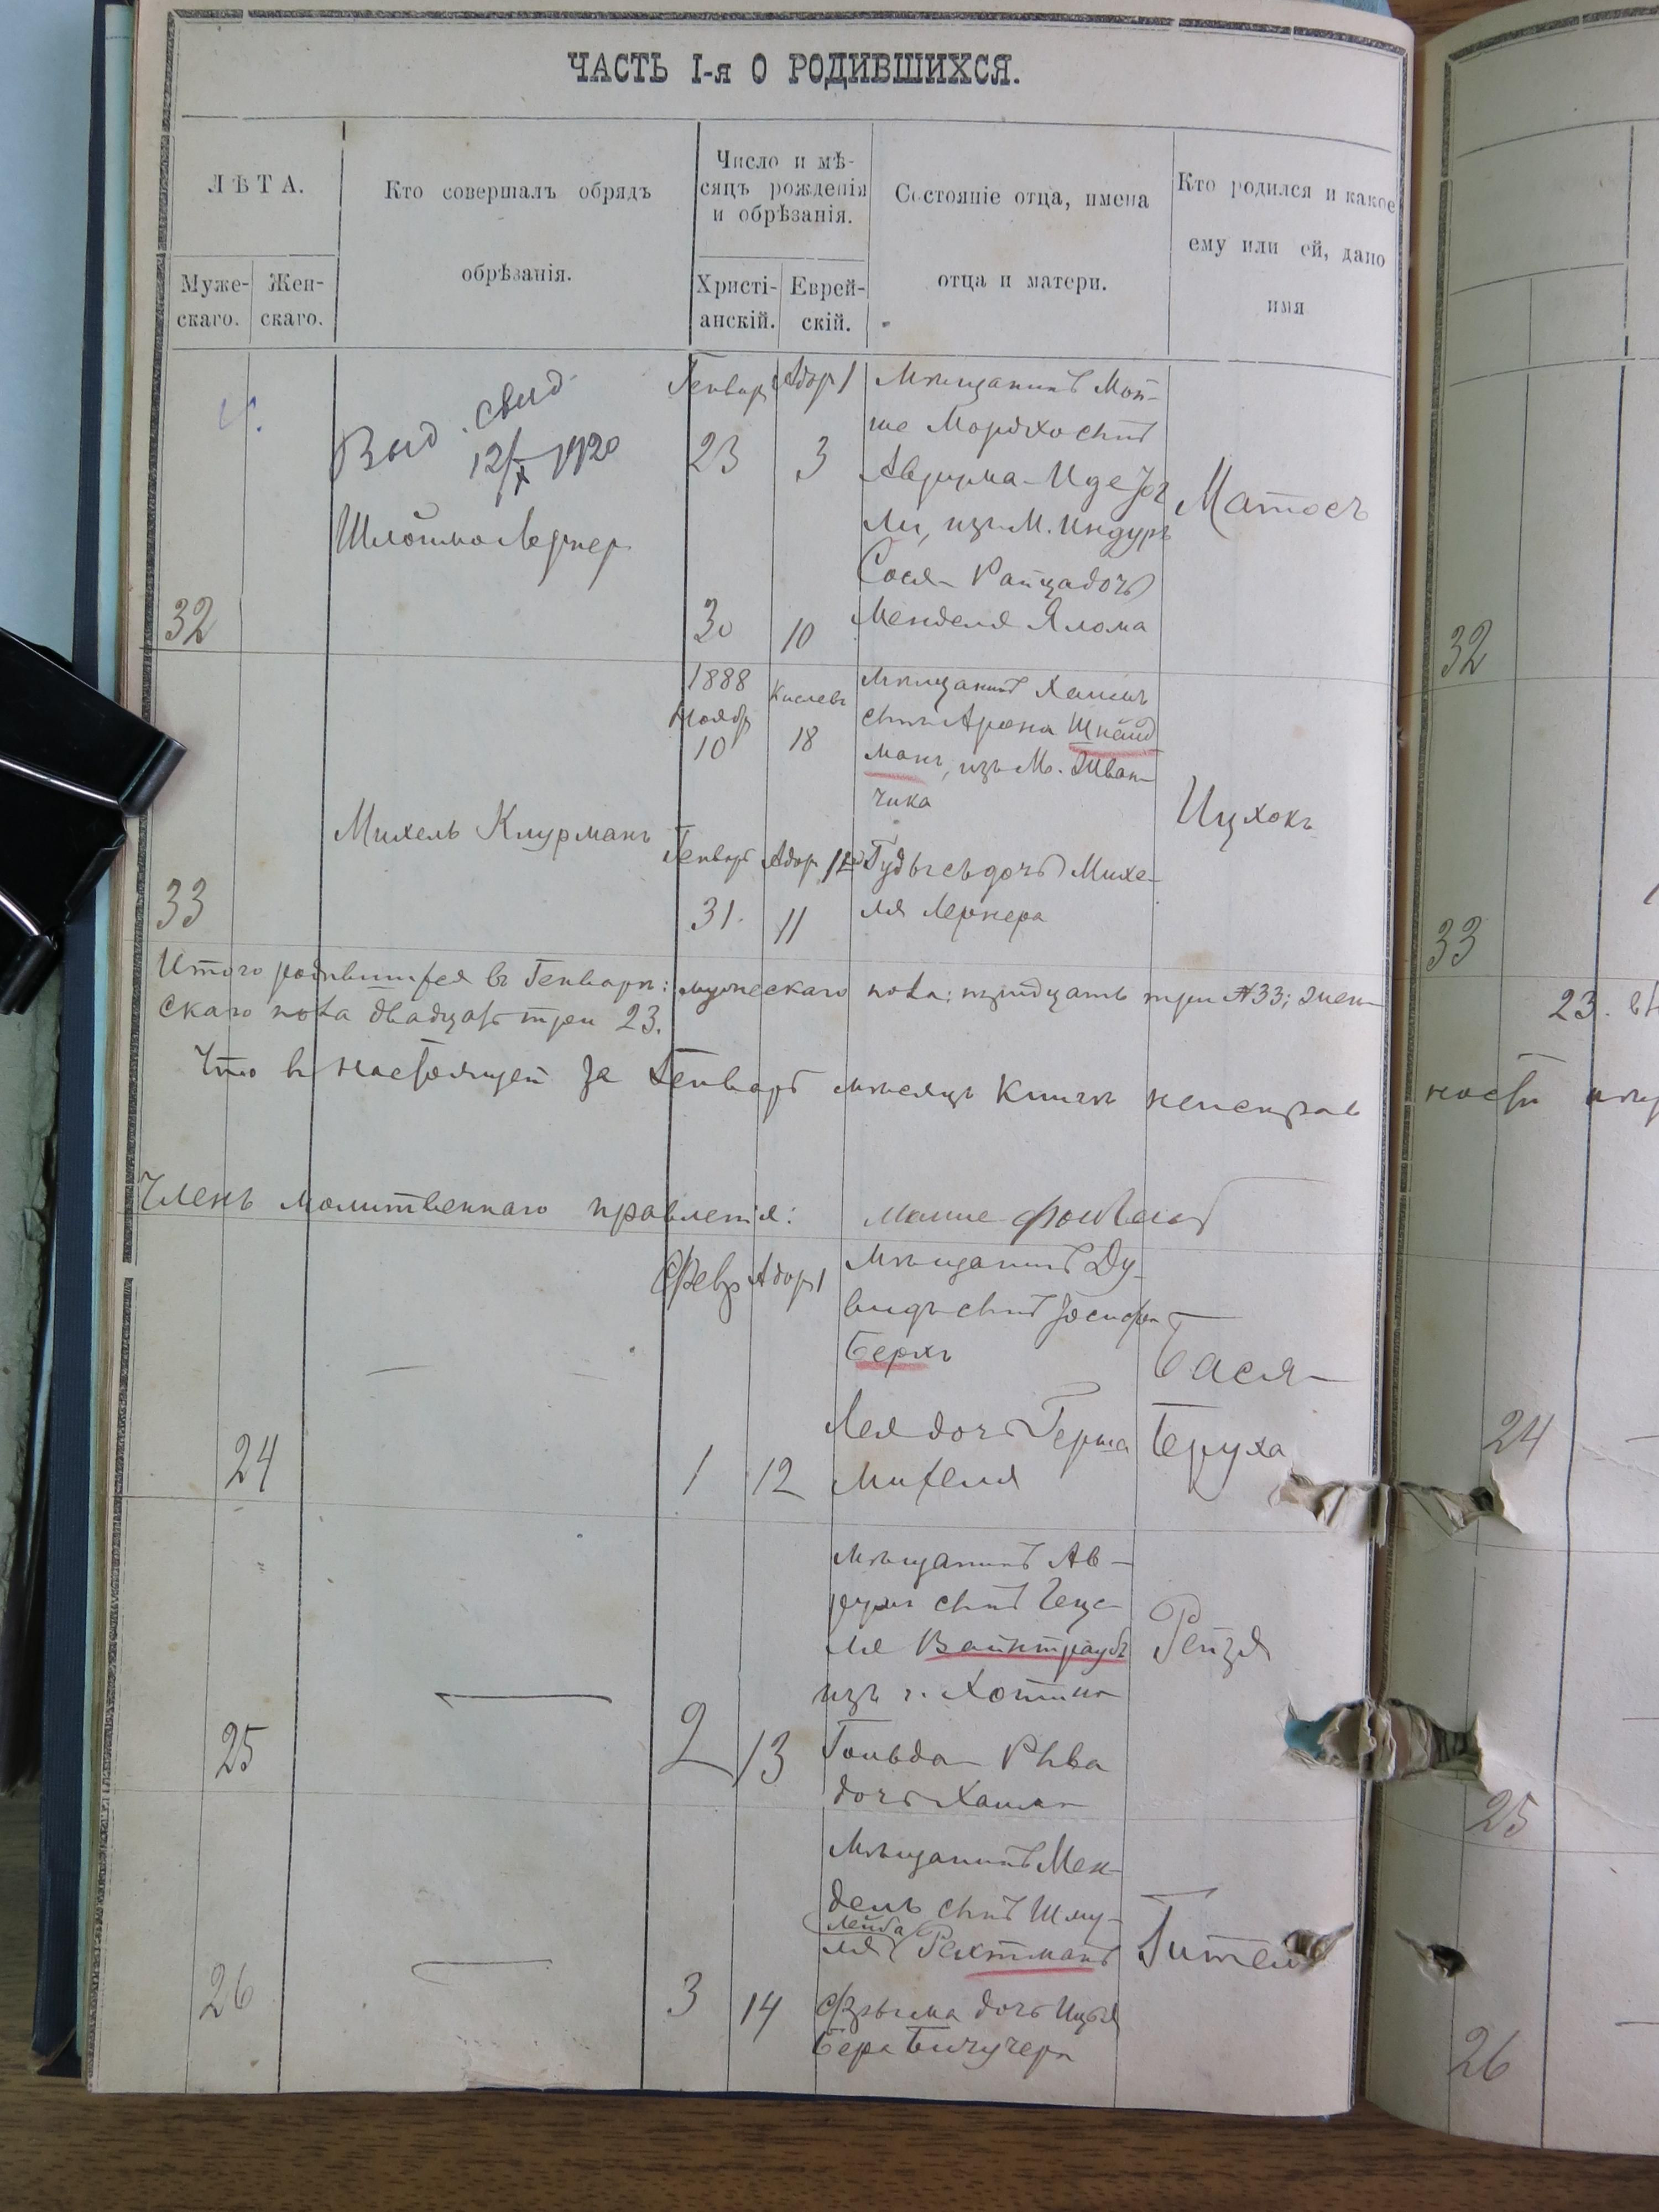 ЧАСТЬ I-я О РОДИВШИХСЯ.
ЛѢТА.
Муже-
скаго.
Жен-
скаго.
Кто совершалъ обрядъ
обрѣзанія.
Число и мѣ-
сяцъ рожденія
и обрѣзанія.
Христі-
анскій.
Еврей-
скій.
Состояніе отца, имена
отца и матери.
Кто родился и какое
ему или ей, дано
имя
32
Выд. свид.
12/X 1920
Шлойма Лернер
Генварь
23
30
Адор 1
3
10
Мѣщанинъ Мой-
ше Мордхо сынъ
Аврума-Иде
ли, изъ М. Индуръ
Сося-Райца дочь
Менделя Ялома
Матосъ
33
Михель Клурманъ
1888
Ноябр
10
Генварь
31.
Кислевъ
18
Адор 1
11
Мѣщанинъ Хаимъ
сынъ Арона Шнайд
манъ, изъ М. Иван-
чика
Гудысь дочь Михе-
ля Лернера
Ицхокъ
Итого родившихся въ Генварѣ: мужескаго пола: тридцать три 33; жен-
скаго пола двадцать три 23.
Что въ настоящей за Генварь мѣсяцъ книгѣ неисправ
Членъ молитвеннаго правленія: Мошие
24
—
Февр
1
Адор 1
12
Мѣщанинъ Ду-
видъ сынъ Іосифа
Берхъ
Лея дочь Герша
Михеля
Бася-
Беруха
25
—
2
13
Мѣщанинъ Ав-
румъ сынъ Геце-
ля Вайнтраубъ
изъ г. Хотина
Гольда-Рыва
дочь Хаима
Рейзя
26
—
3
14
Мѣщанинъ Мен-
дель сынъ Шму-
Лейба
ля Рехтманъ
Фрыма дочь
Бера Бичучера
Гитель
32
33
23.
ности
24
25
26